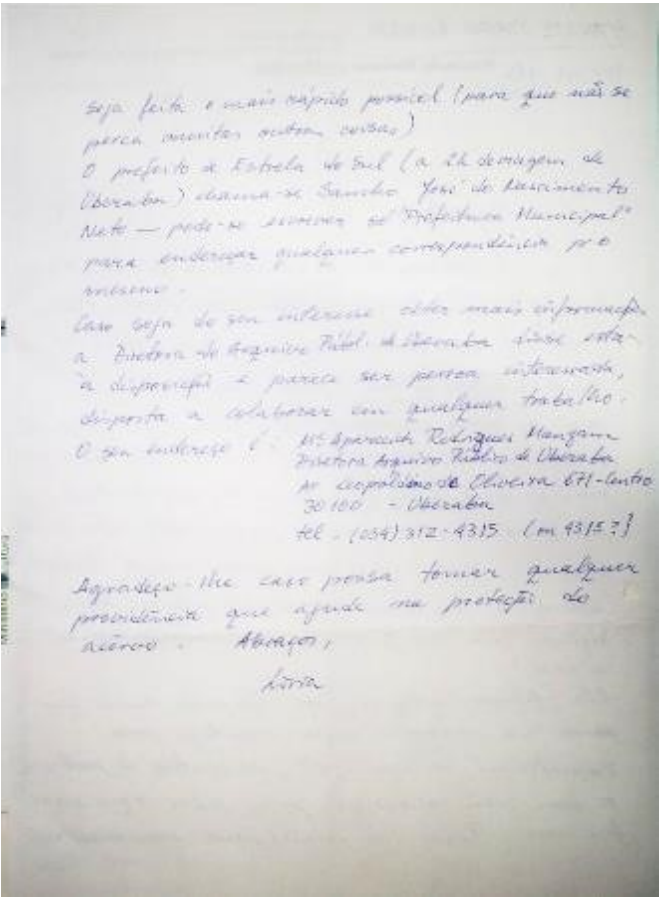 seja feita o mais rápido possível (para que não se
perca muitas outras coisas)
O prefeito de Estrela do Sul (a 2h de viagem de
Uberaba) chama-se Sancho José do Nascimento
Neto — pode-se escrever só "Prefeitura Municipal"
para endereçar qualquer correspondência p/ o
mesmo.
Caso seja do seu interesse obter mais informações
a Diretora do Arquivo Públ. de Uberaba disse estar
à disposição e parece ser pessoa interessada,
disposta a colaborar em qualquer trabalho.
O seu endereço é: Mª Aparecida Rodrigues Manzan
Diretora Arquivo Público de Uberaba
Av Leopoldino de Oliveira 671-Centro
30100 - Uberaba
tel - (034) 312-4315 (ou 9315?)
Agradeço-lhe caso possa tomar qualquer
providência que ajude na proteção do
acervo. Abraços,